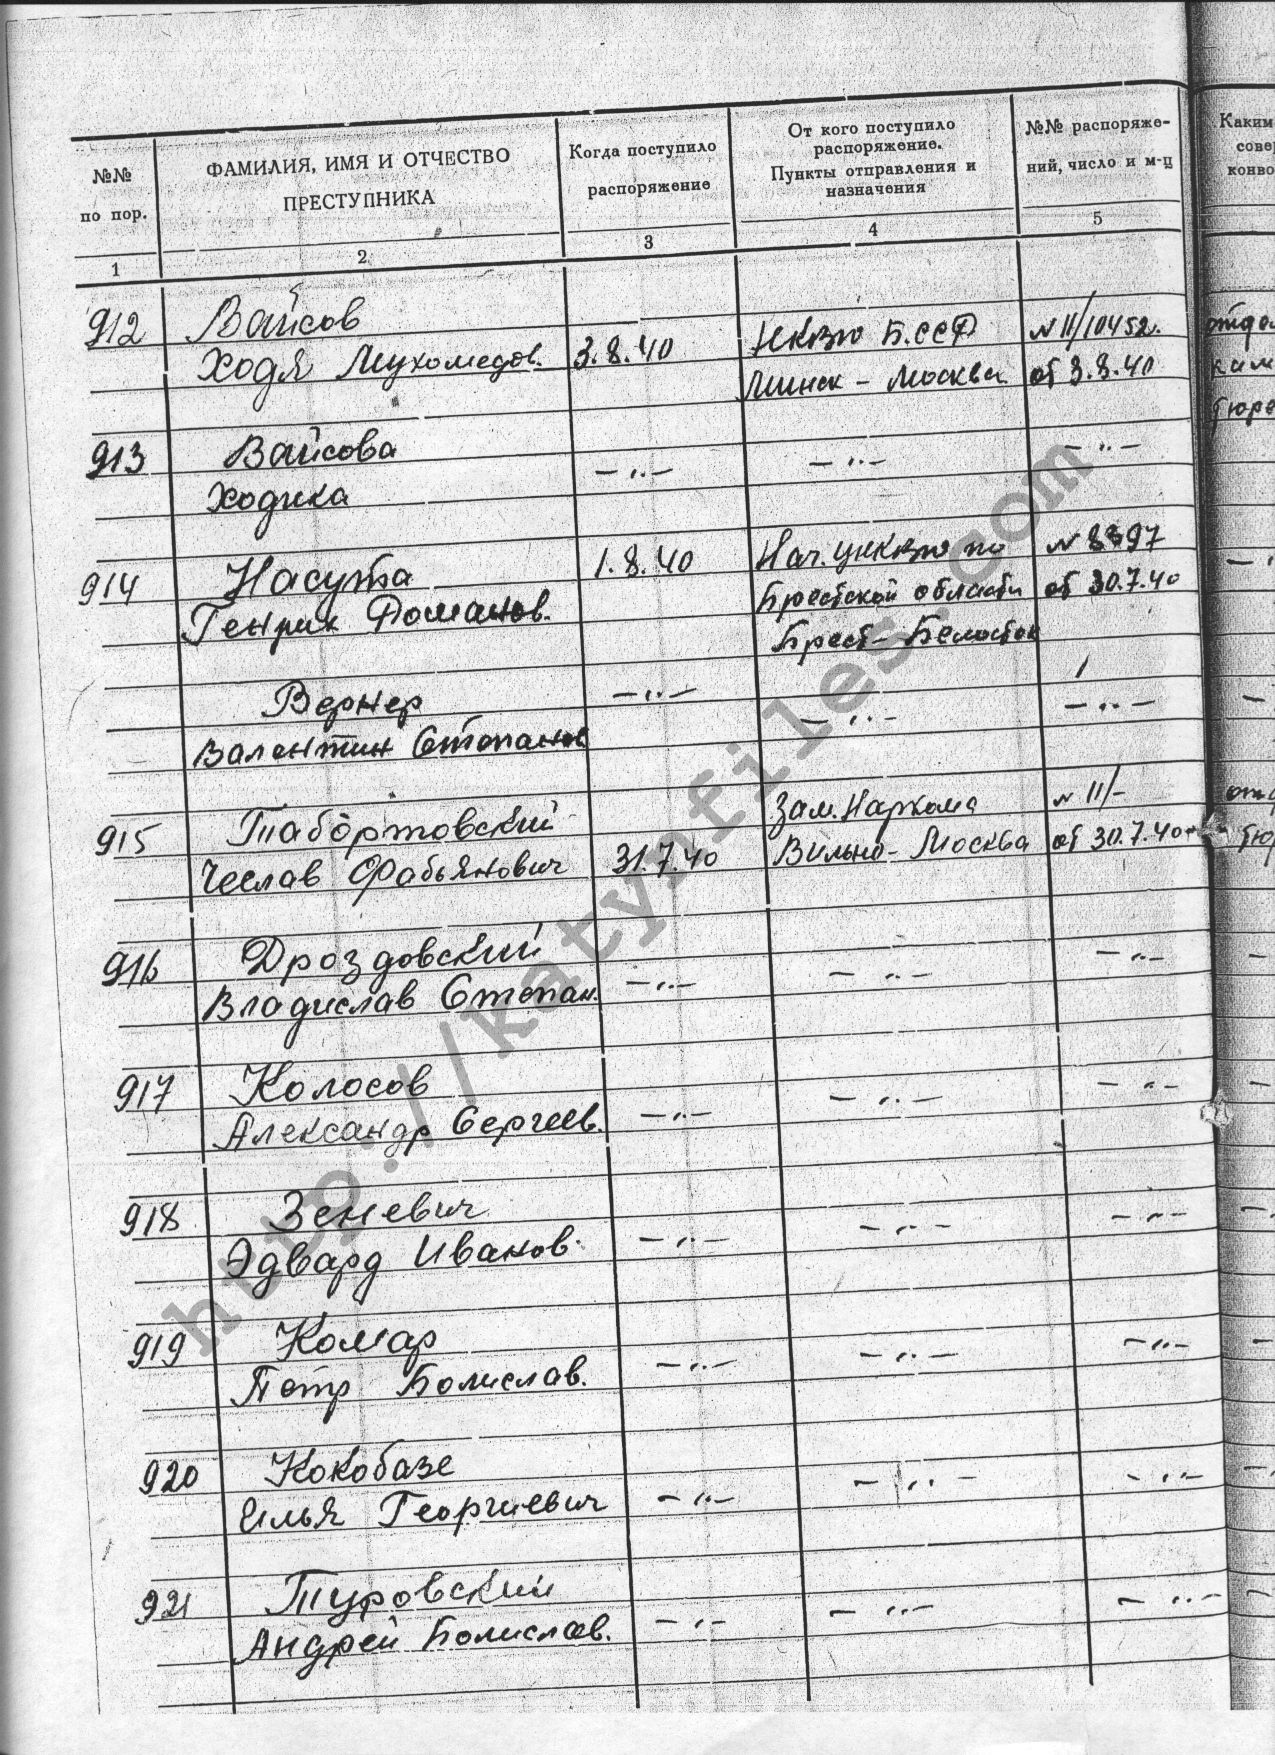 №№
по пор.
ФАМИЛИЯ, ИМЯ И ОТЧЕСТВО
ПРЕСТУПНИКА
Когда поступило
распоряжение
От кого поступило
распоряжение.
Пункты отправления и
назначения
№№ распоряже-
ний, число и м-ц
Каким
совер
конво
1
2
3
4
5
912
Вайсов
Ходя Мухомедов.
3.8.40
НКВД Б.ССР
Минск - Москва
N 11/10452.
от 3.8.40
913
Вайсова
Ходика
— ·· —
— ·· —
— ·· —
914
Насута
Генрик Романов.
1.8.40
Нач. УНКВД по
Брестской области
Брест - Белосток
N 8397
от 30.7.40
Вернер
Валентин Степанов
— ·· —
— ·· —
— ·· —
915
Табортовский
Чеслав Фабьянович
31.7.40
Зам. Наркома
Вильно - Москва
N 11/-
от 30.7.40
916
Дроздовский
Владислав Степан.
— ·· —
— ·· —
— ·· —
917
Колосов
Александр Сергеев.
— ·· —
— ·· —
— ·· —
918
Зеневич
Эдвард Иванов.
— ·· —
— ·· —
— ·· —
919
Комар
Петр Болислав.
— ·· —
— ·· —
— ·· —
920
Кокобазе
Илья Георгиевич
— ·· —
— ·· —
— ·· —
921
Туровский
Андрей Болислав.
— ·· —
— ·· —
— ·· —
http://katynfiles.com